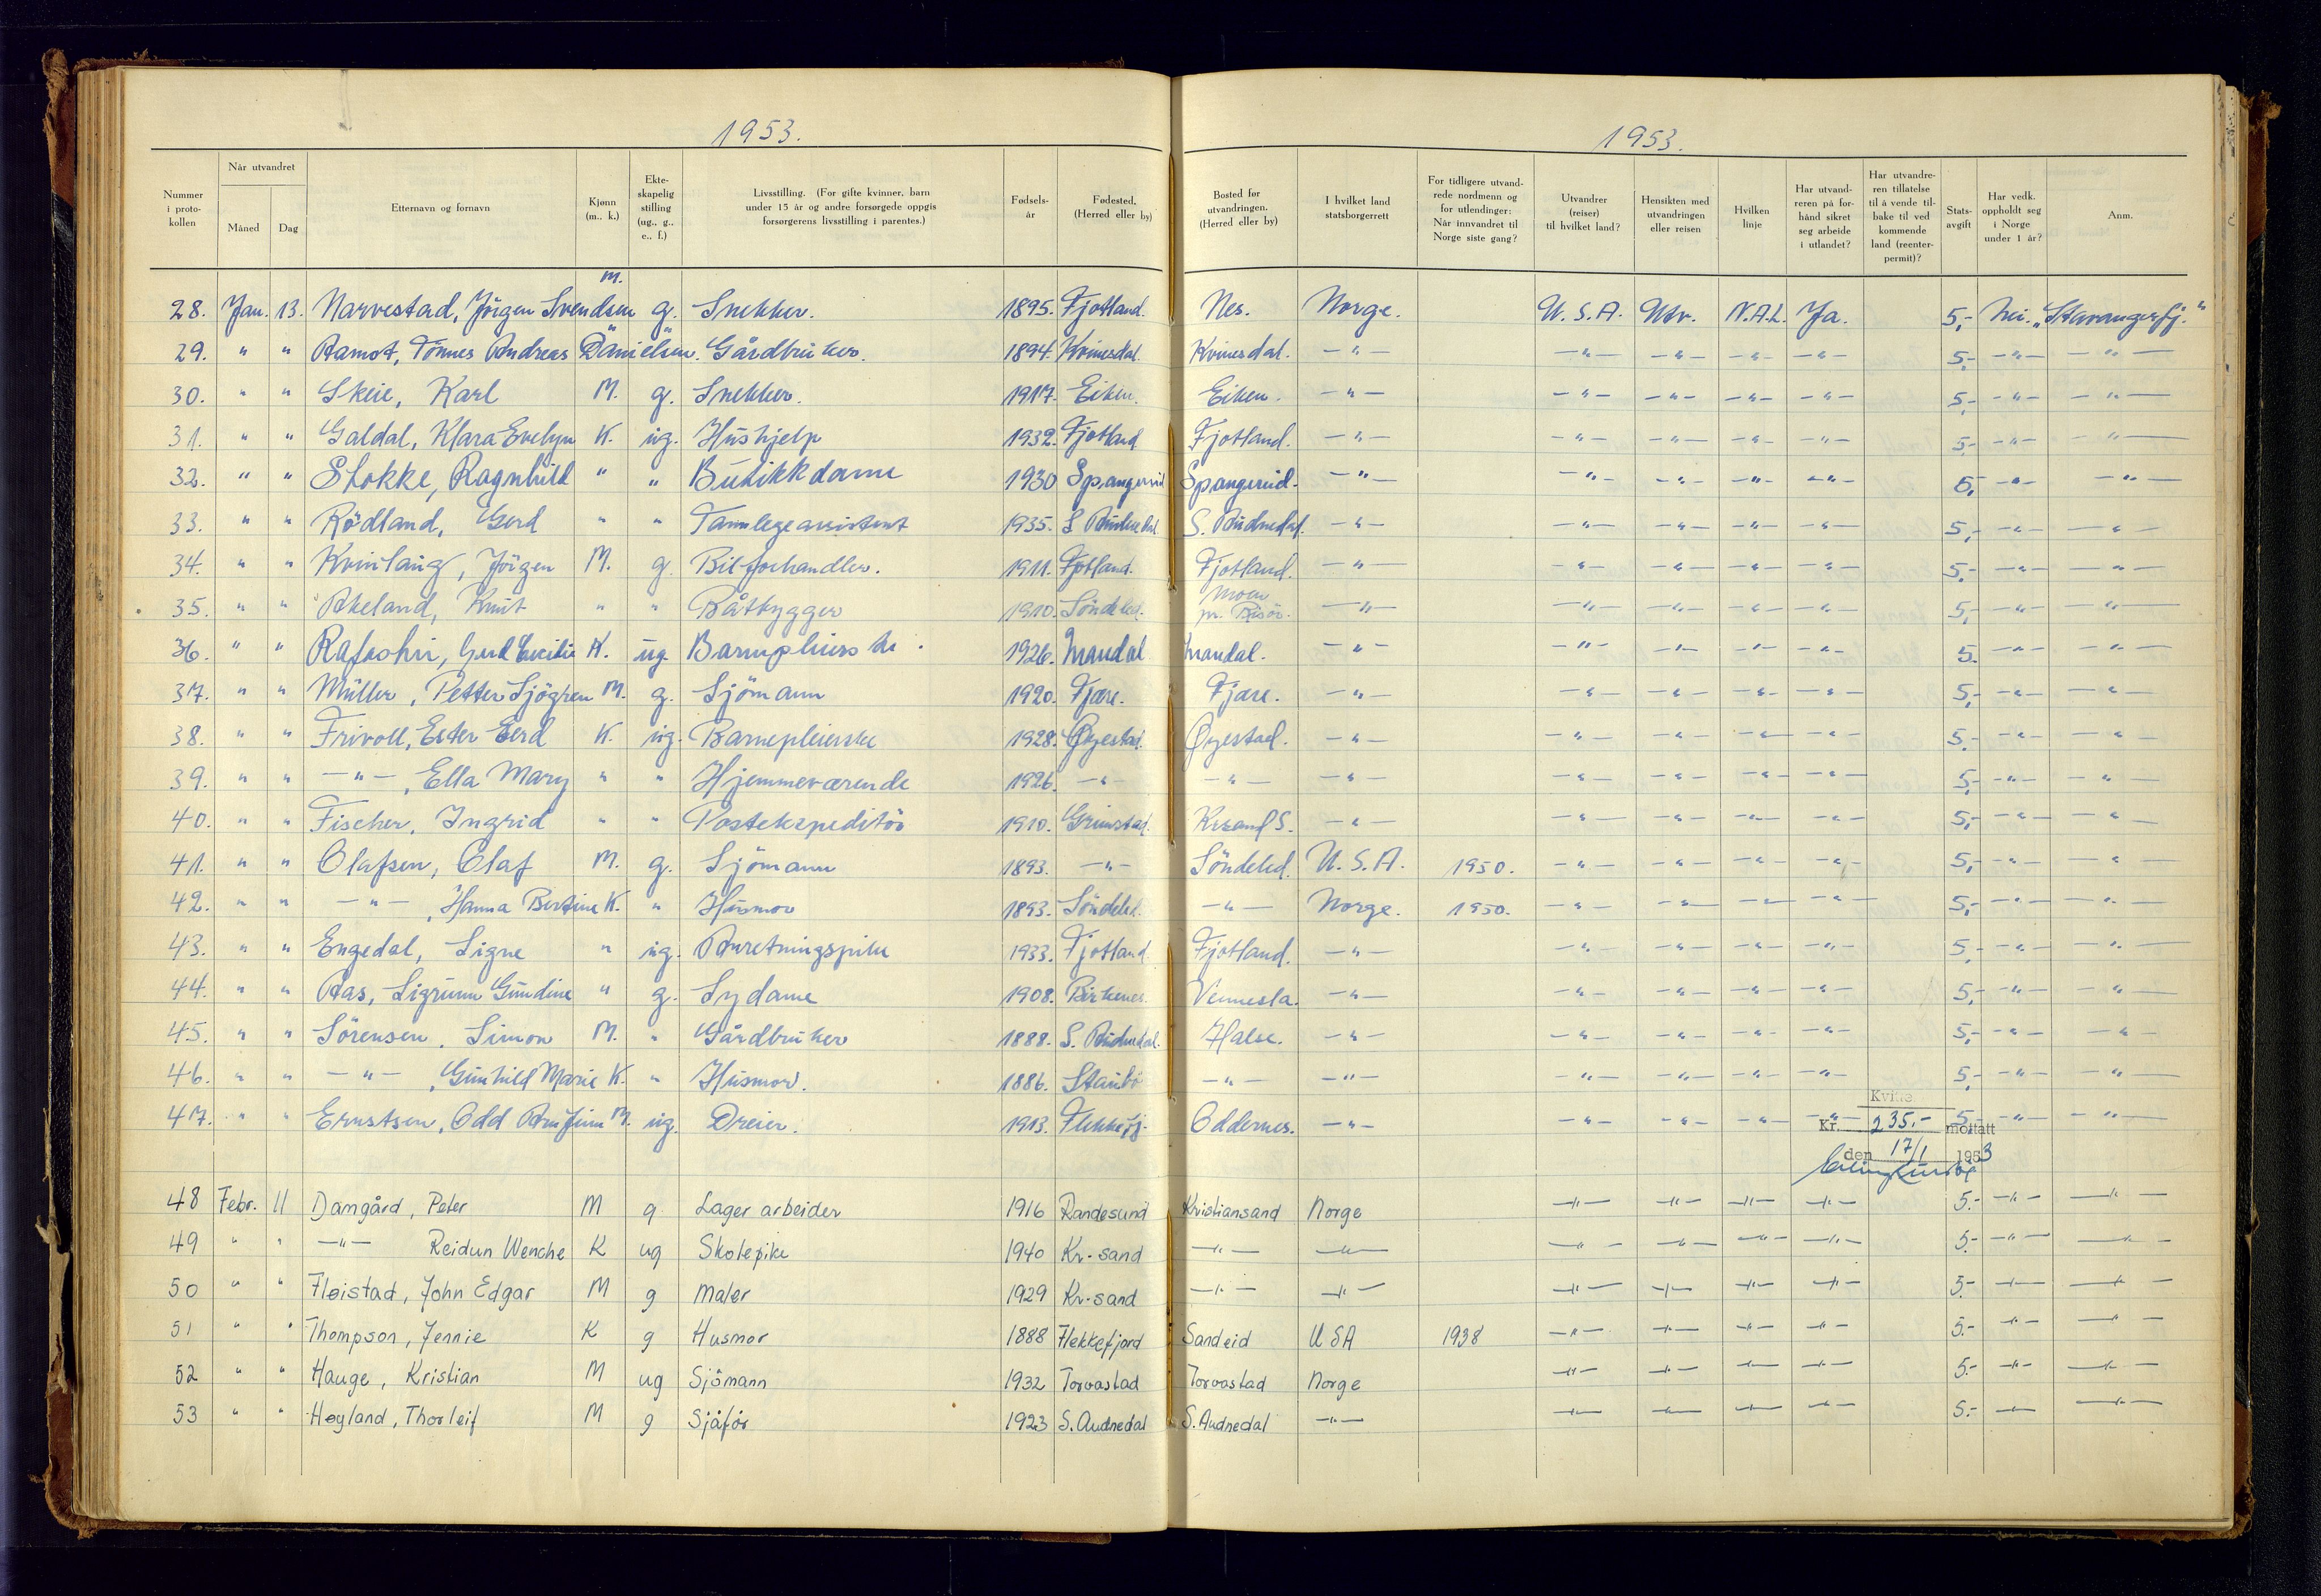 1953.
1953.
Nummer i proto- kollen | Når utvandret | Måned | Dag | Etternavn og fornavn | Kjønn (m., k.) | Ekte- skapelig stilling (ug., g., e., f.) | Livsstilling. (For gifte kvinner, barn under 15 år og andre forsørgede oppgis forsørgerens livsstilling i parentes.) | Fødsels- år | Fødested. (Herred eller by) | Bosted før utvandringen. (Herred eller by) | I hvilket land statsborgerrett | For tidligere utvand- rede nordmenn og for utlendinger: Når innvandret til Norge siste gang? | Utvandrer (reiser) til hvilket land? | Hensikten med utvandringen eller reisen | Hvilken linje | Har utvand- reren på for- hånd sikret seg arbeide i utlandet? | Har utvandre- ren tillatelse til å vende til- bake til ved kommende land (reenter- permit)? | Stats- avgift | Har vedk. oppholdt seg i Norge under 1 år? | Anm.
28. Jan. 13. Narvestad, Jörgen Svendsen M. g. Snekker. 1895. Fjotland. Nes. Norge. U.S.A. Utv. N.A.L. Ja. 5,- Nei. „Stavangerfj."
29. " " Ramot, Tönnes Andreas Danielsen. " " Gårdbruker. 1894. Kvinesdal. Kvinesdal. -"- -"- -"- -"- -"- 5,- -"- -"-
30. " " Skeie, Karl M. g. Snekker. 1917. Eiken. Eiken. -"- -"- -"- -"- -"- 5,- -"- -"-
31. " " Galdal, Klara Evelyn K. ug. Hushjelp 1932. Fjotland Fjotland. -"- -"- -"- -"- -"- 5,- -"- -"-
32. " " Stokke, Ragnhild " " Butikkdame 1930 Spangereid Spangereid. -"- -"- -"- -"- -"- 5,- -"- -"-
33. " " Rödland, Gerd " " Tannlegeassistent 1935. S. Audnedal S. Audnedal. -"- -"- -"- -"- -"- 5,- -"- -"-
34. " " Kvinlaug, Jörgen M. g. Bilforhandler. 1911. Fjotland. Fjotland. -"- -"- -"- -"- -"- 5,- -"- -"-
35. " " Åkeland, Knut " " Båtbygger 1910. Söndeled. Moen pr. Risör. -"- -"- -"- -"- -"- 5,- -"- -"-
36. " " Gerd Cecilie K. ug. Barnepleierske. 1926. Mandal Mandal. -"- -"- -"- -"- -"- 5. -"- -"-
37. " " Müller, Petter Sjögren M. g. Sjömann 1920. Fjære. Fjære. -"- -"- -"- -"- -"- 5,- -"- -"-
38. " " Frivoll, Ester Gerd K. ug. Barnepleierske 1928. Øyestad. Øyestad. -"- -"- -"- -"- -"- 5,- -"- -"-
39. " " -"-, Ella Mary " " Hjemmeværende 1926. -"- -"- -"- -"- -"- -"- -"- 5,- -"- -"-
40. " " Fischer, Ingrid " " Postekspeditör 1910. Grimstad. Krsand S. -"- -"- -"- -"- -"- 5,- -"- -"-
41. " " Olafsen, Olaf M. g. Sjömann 1893. -"- Söndeled. U.S.A. 1950. -"- -"- -"- -"- 5,- -"- -"-
42. " " -"-, Hanna Bertine K. " Husmor 1893. Söndeled. -"- Norge. 1950. -"- -"- -"- -"- 5,- -"- -"-
43. " " Engedal, Signe " ug. Anretningspike 1933. Fjotland Fjotland. -"- -"- -"- -"- -"- 5,- -"- -"-
44. " " Aas, Sigrunn Gundine " g. Sydame 1908. Birkenes. Vennesla. -"- -"- -"- -"- -"- 5,- -"- -"-
45. " " Sörensen, Simon M. " Gårdbruker 1888. S. Audnedal. Halse. -"- -"- -"- -"- -"- 5,- -"- -"-
46. " " -"-, Gunhild Marie K. " Husmor. 1886. -"- -"- -"- -"- -"- -"- 5,- -"- -"-
47. " " Ernstsen, Odd Arnfinn M. ug. Dreier. 1913. Flekkefj. Oddernes. -"- -"- -"- -"- -"- 5,- -"- -"-
Kvitte
Kr. 235.- mottatt
den 17/1 1953
48 Febr. 11 Damgård, Peter M g Lager arbeider 1916 Randesund Kristiansand Norge -"- -"- -"- -"- 5.- -"- -"-
49 " " -"- Reidun Wenche K ug Skolepike 1940 Kr.sand -"- -"- -"- -"- -"- -"- 5.- -"- -"-
50 " " Fløistad, John Edgar M g Maler 1929 Kr.sand -"- -"- -"- -"- -"- -"- 5.- -"- -"-
51 " " Thompson, Jennie K g Husmor 1888 Flekkefjord Sandeid USA 1938 -"- -"- -"- -"- 5.- -"- -"-
52 " " Hauge, Kristian M ug Sjömann 1932 Torvastad Torvastad Norge -"- -"- -"- -"- 5.- -"- -"-
53 " " Høyland, Thorleif M g Sjåför 1923 S. Audnedal S. Audnedal -"- -"- -"- -"- -"- 5.- -"- -"-